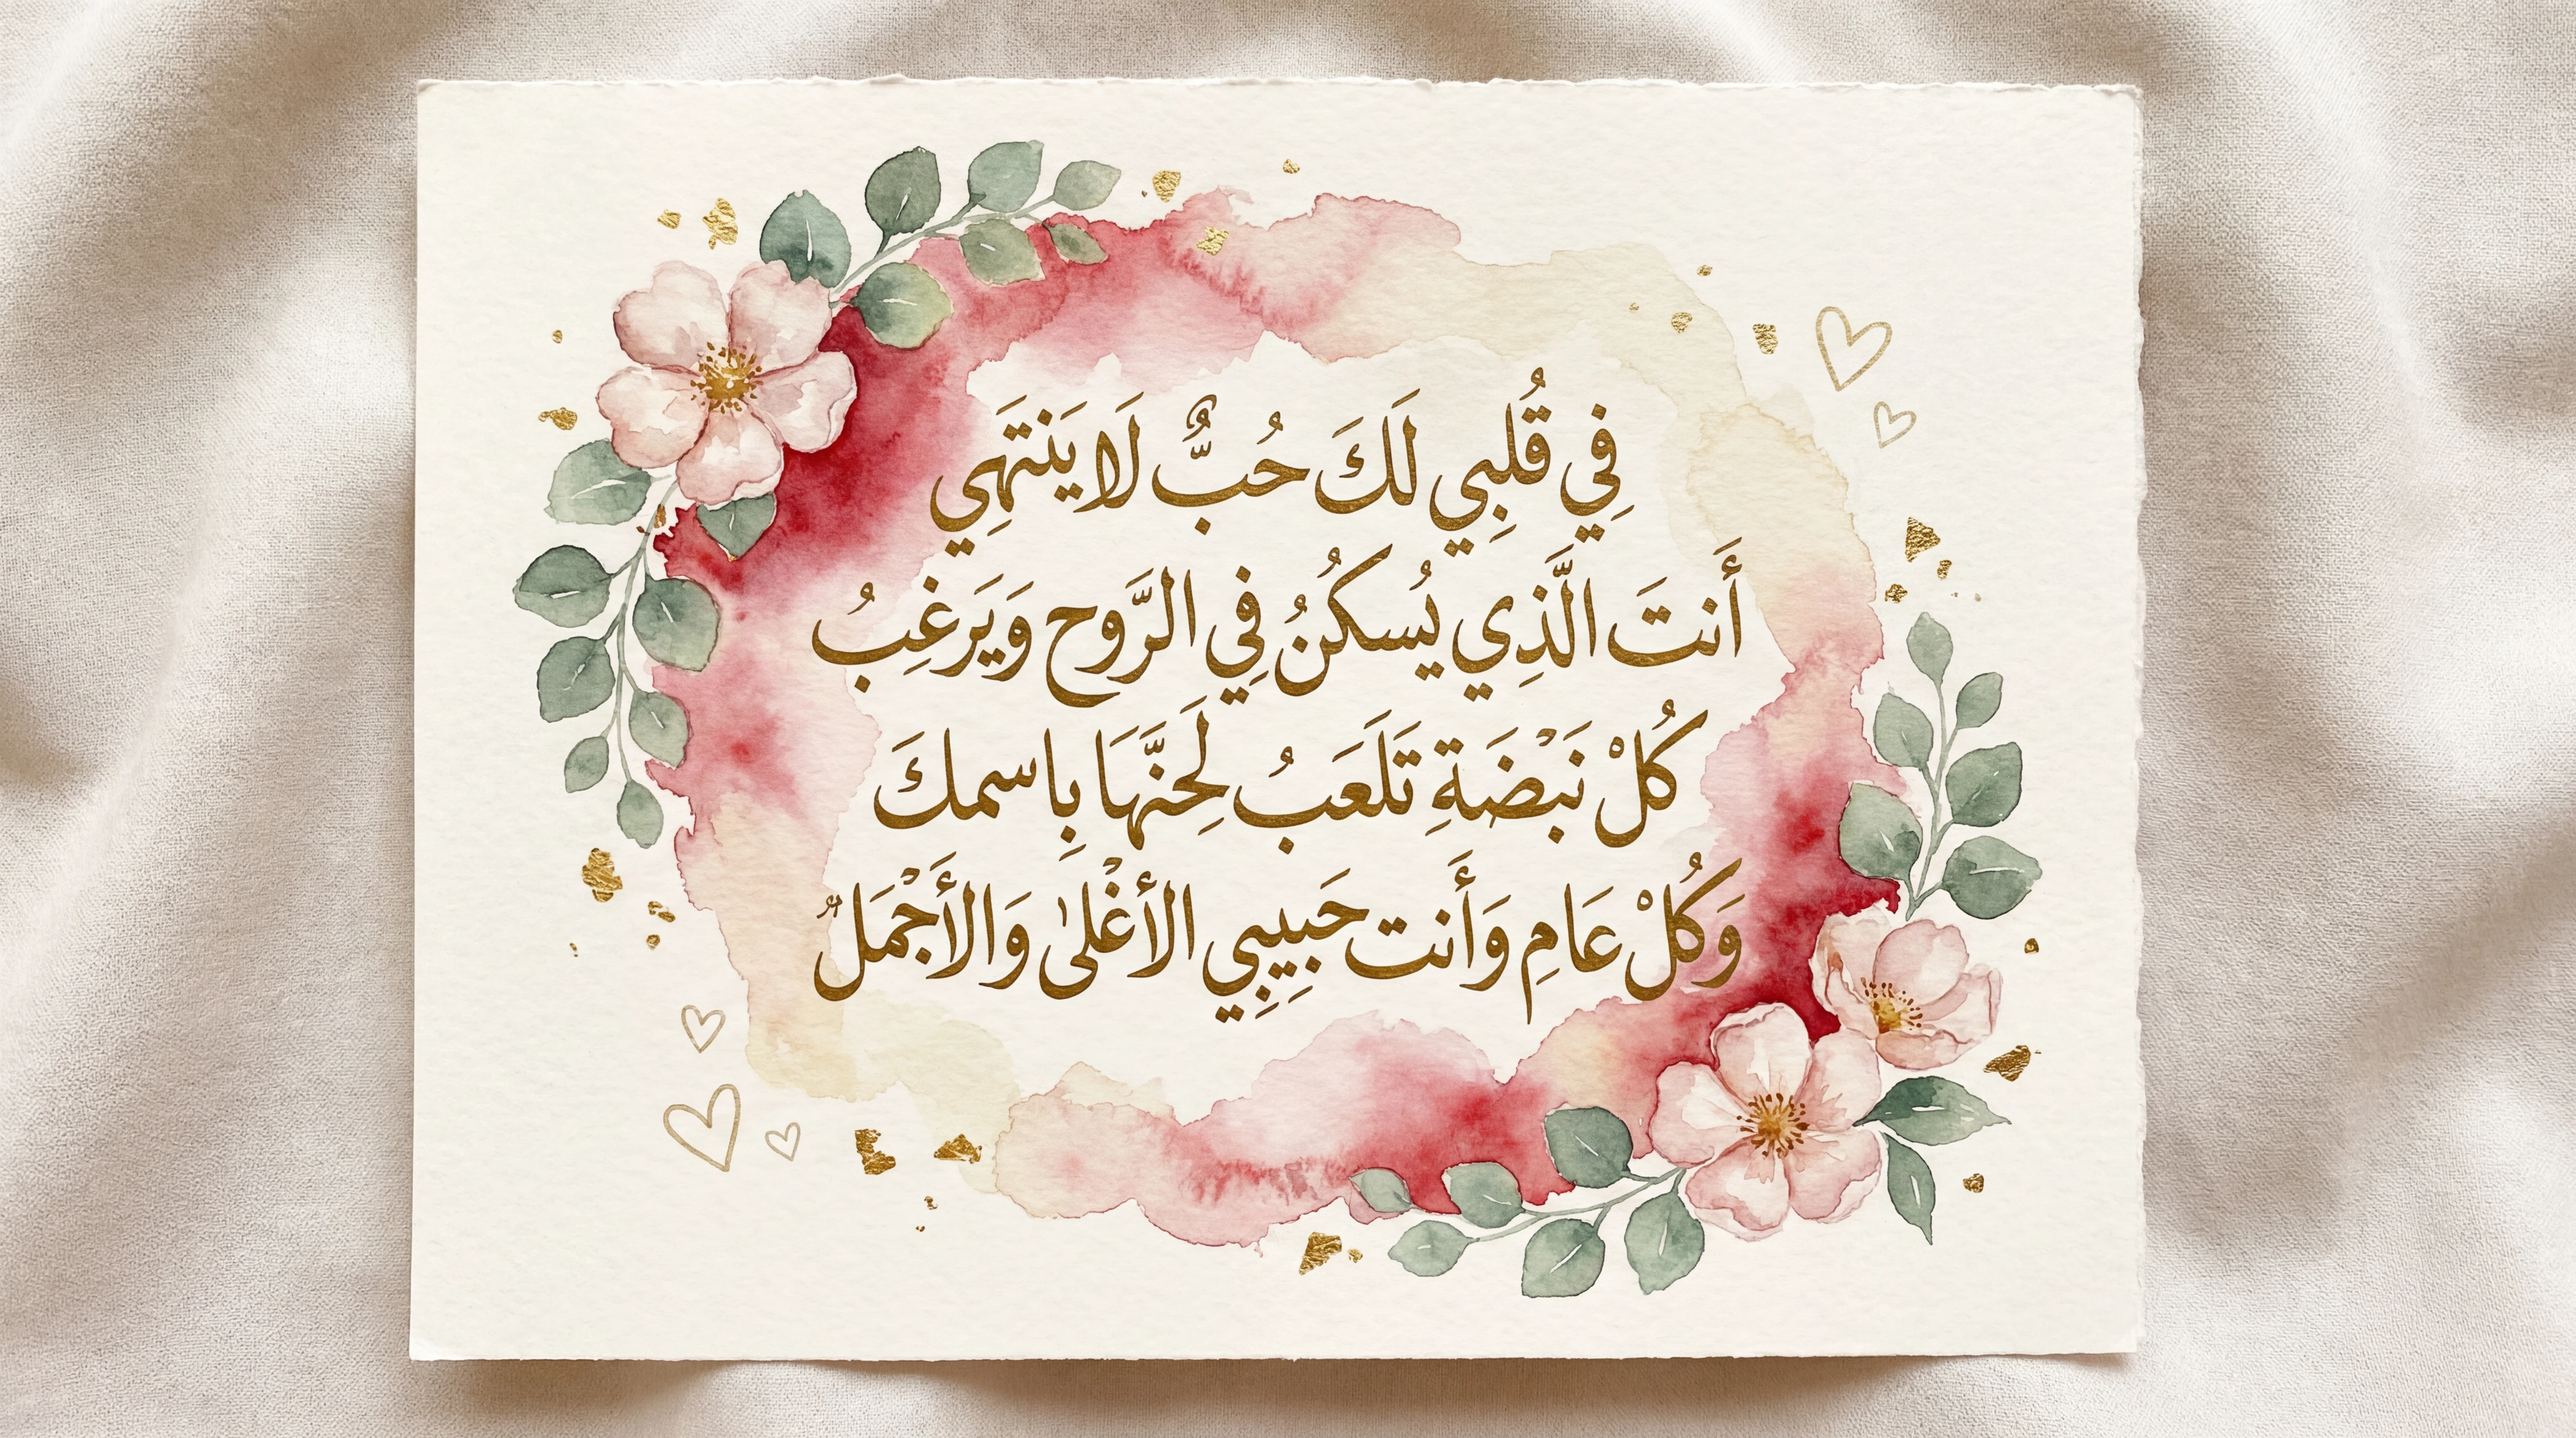 فِي قُلبِي لَكَ حُبٌّ لَا يَنتَهِي
أَنتَ الَّذِي يُسكنُ فِي الرَّوح وَيَرغِبُ
كُلْ نَبْضَةِ تَلَعَبُ لَحِنَّهَا بِاسمكَ
وَكُلْ عَامِ وَأَنت حَبِيبِي الأَغْلىٰ وَالأَجْمَل